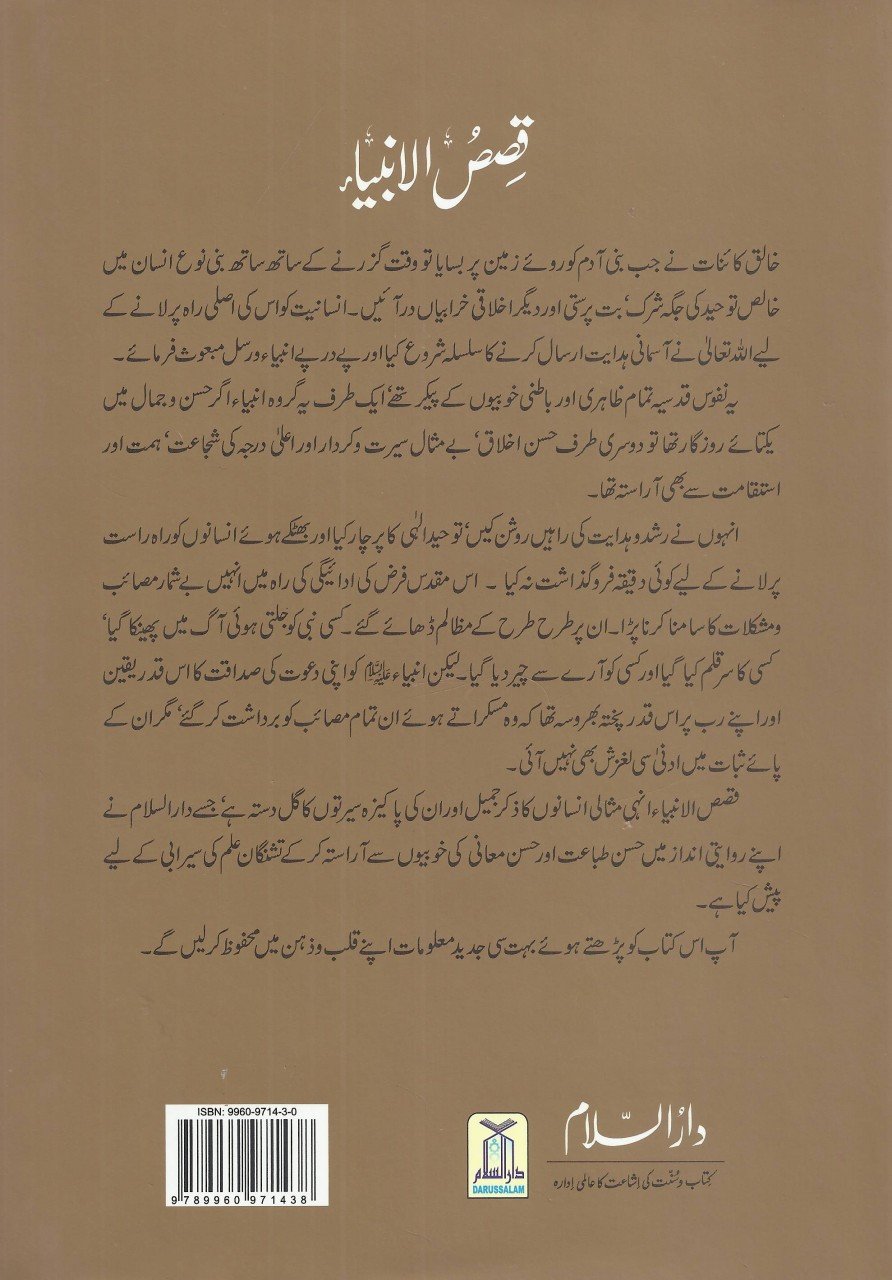 قصصُ الانبیاء
خالق کائنات نے جب بنی آدم کو روئے زمین پر بسایا تو وقت گزرنے کے ساتھ ساتھ بنی نوع انسان میں
خالص توحید کی جگہ شرک‘ بت پرستی اور دیگر اخلاقی خرابیاں در آئیں۔ انسانیت کو اس کی اصلی راہ پر لانے کے
لیے اللہ تعالیٰ نے آسمانی ہدایت ارسال کرنے کا سلسلہ شروع کیا اور پے در پے انبیاء و رسل مبعوث فرمائے۔
یہ نفوس قدسیہ تمام ظاہری اور باطنی خوبیوں کے پیکر تھے‘ ایک طرف یہ گروہ انبیاء اگر حسن و جمال میں
یکتائے روزگار تھا تو دوسری طرف حسن اخلاق‘ بے مثال سیرت و کردار اور اعلیٰ درجہ کی شجاعت‘ ہمت اور
استقامت سے بھی آراستہ تھا۔
انہوں نے رشد و ہدایت کی راہیں روشن کیں‘ توحید الٰہی کا پرچار کیا اور بھٹکے ہوئے انسانوں کو راہ راست
پر لانے کے لیے کوئی دقیقہ فروگذاشت نہ کیا ۔ اس مقدس فرض کی ادائیگی کی راہ میں انہیں بے شمار مصائب
و مشکلات کا سامنا کرنا پڑا۔ ان پر طرح طرح کے مظالم ڈھائے گئے۔ کسی نبی کو جلتی ہوئی آگ میں پھینکا گیا‘
کسی کا سر قلم کیا گیا اور کسی کو آرے سے چیر دیا گیا۔ لیکن انبیاء علیہم السلام کو اپنی دعوت کی صداقت کا اس قدر یقین
اور اپنے رب پر اس قدر پختہ بھروسہ تھا کہ وہ مسکراتے ہوئے ان تمام مصائب کو برداشت کر گئے‘ مگر ان کے
پائے ثبات میں ادنیٰ سی لغزش بھی نہیں آئی۔
قصص الانبیاء انہی مثالی انسانوں کا ذکر جمیل اور ان کی پاکیزہ سیرتوں کا گل دستہ ہے‘ جسے دارالسلام نے
اپنے روایتی انداز میں حسن طباعت اور حسن معانی کی خوبیوں سے آراستہ کر کے تشنگان علم کی سیرابی کے لیے
پیش کیا ہے۔
آپ اس کتاب کو پڑھتے ہوئے بہت سی جدید معلومات اپنے قلب و ذہن میں محفوظ کر لیں گے۔
دارُالسّلام
کتاب و سُنّت کی اشاعت کا عالمی ادارہ
دارالسلام
DARUSSALAM
ISBN: 9960-9714-3-0
9 789960 971438